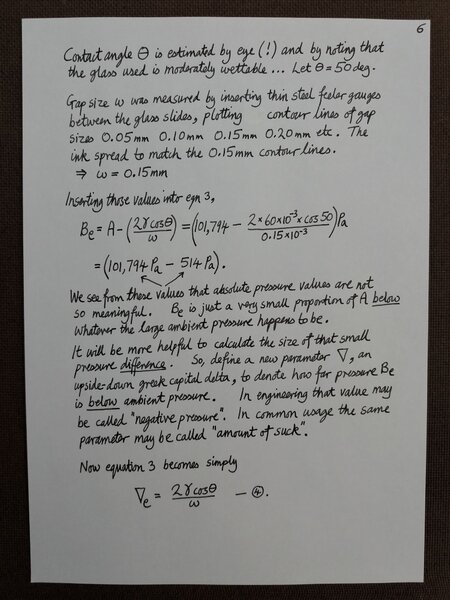 6
Contact angle θ is estimated by eye (!) and by noting that
the glass used is moderately wettable ... Let θ = 50 deg.
Gap size w was measured by inserting thin steel feeler gauges
between the glass slides, plotting contour lines of gap
sizes 0.05mm 0.10mm 0.15mm 0.20mm etc. The
ink spread to match the 0.15mm contour lines.
⇒ w = 0.15mm
Inserting those values into eqn 3,
Be = A - (2γcosθ/w) = (101,794 - 2×60×10⁻³×cos50/0.15×10⁻³)Pa
= (101,794 Pa - 514 Pa).
We see from these values that absolute pressure values are not
so meaningful. Be is just a very small proportion of A below
whatever the large ambient pressure happens to be.
It will be more helpful to calculate the size of that small
pressure difference. So, define a new parameter ∇, an
upside-down greek capital delta, to denote how far pressure Be
is below ambient pressure. In engineering that value may
be called "negative pressure". In common usage the same
parameter may be called "amount of suck".
Now equation 3 becomes simply
∇e = 2γcosθ/w — ④.